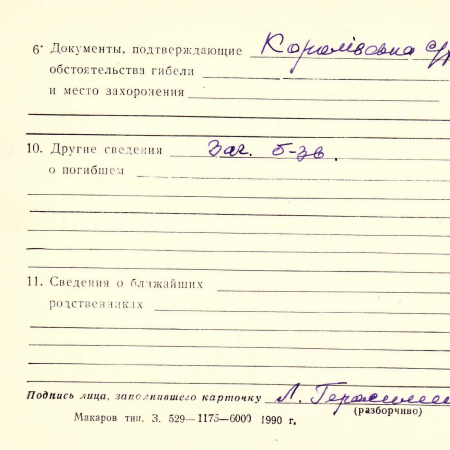 6· Документы, подтверждающие Королівська
обстоятельства гибели
и место захоронения
10. Другие сведения Заг. б-зв.
о погибшем
11. Сведения о ближайших
родственниках
Подпись лица, заполнившего карточку Л. Герасимен
(разборчиво)
Макаров тип. З. 529—1175—6000 1990 г.